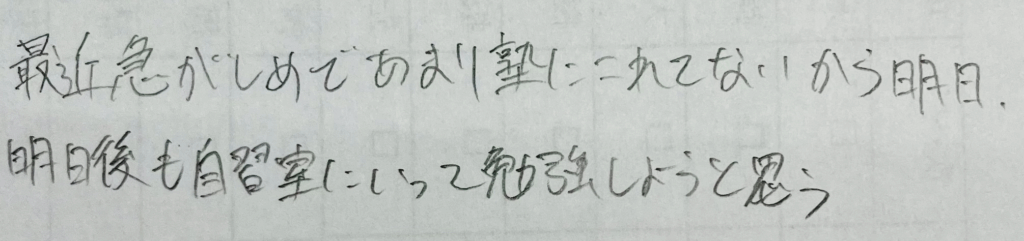 最近急がしめであまり塾にこれてないから明日.
明日後も自習室にいって勉強しようと思う